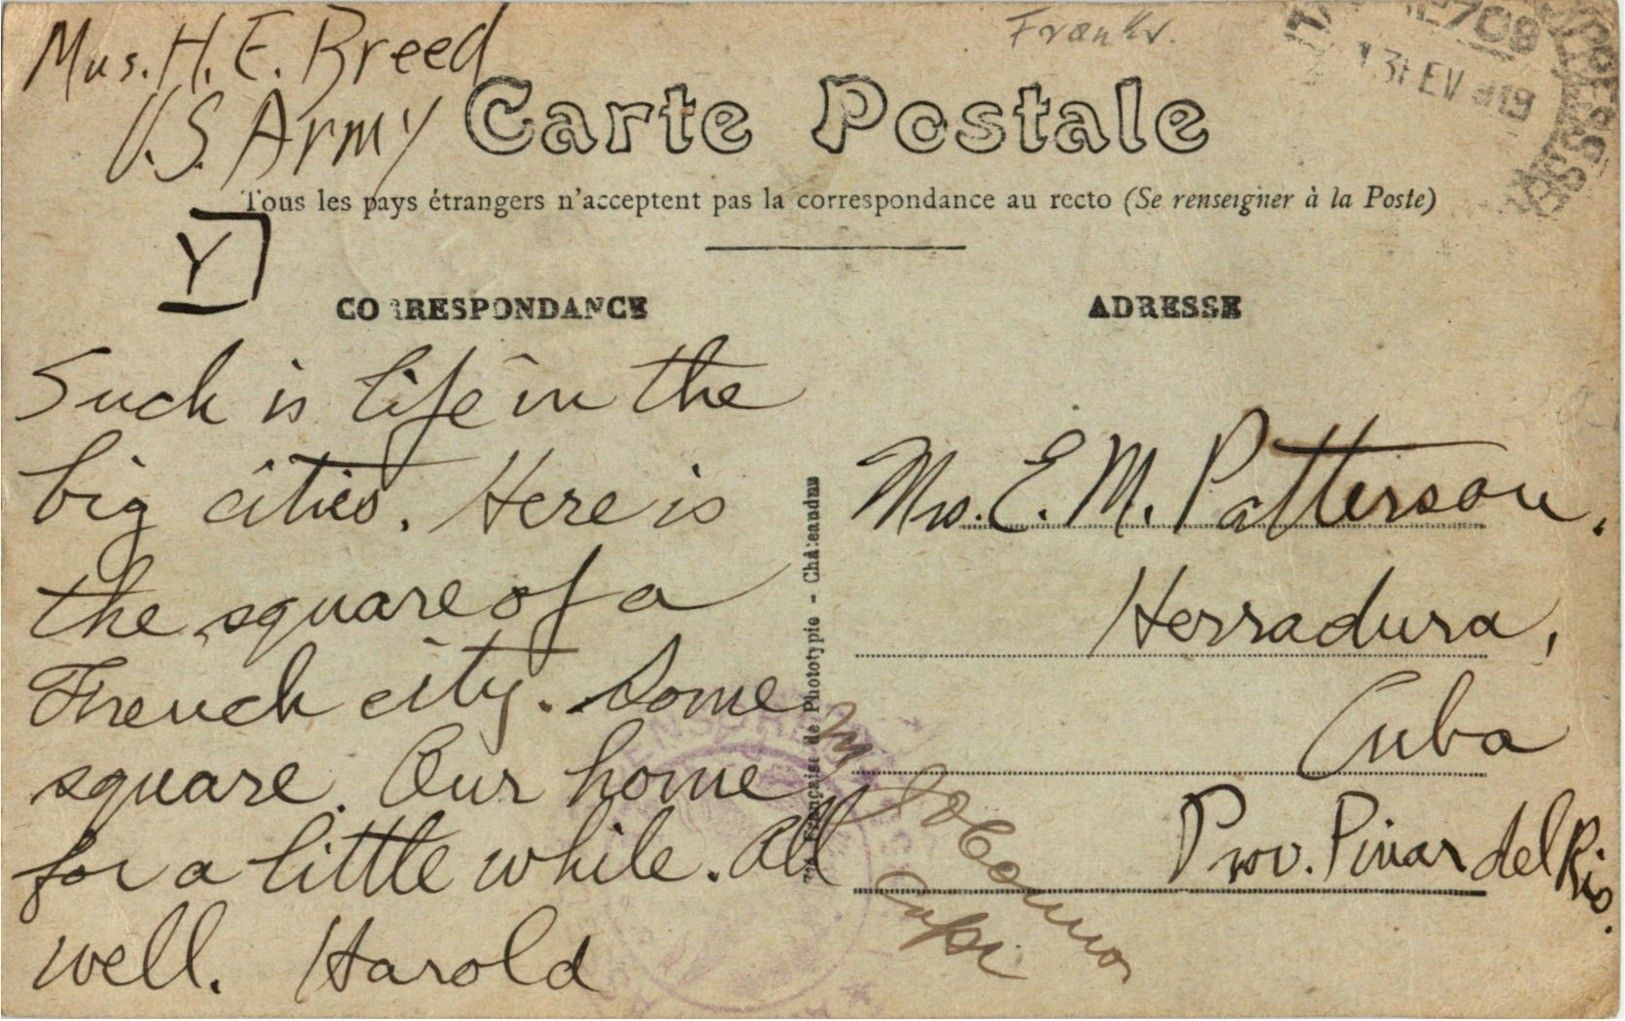 Mus. H. E. Breed
U.S. Army
Frankr.
Carte Postale
Tous les pays étrangers n'acceptent pas la correspondance au recto (Se renseigner à la Poste)
Y
CORRESPONDANCE
Such is life in the
big cities. Here is
the square of a
French city. Some
square. Our home
for a little while. All
well. Harold
Française de Phototypie - Châteaudun
ADRESSE
Mrs. E. M. Patterson,
Herradura,
Cuba
Prov. Pinar del Rio.